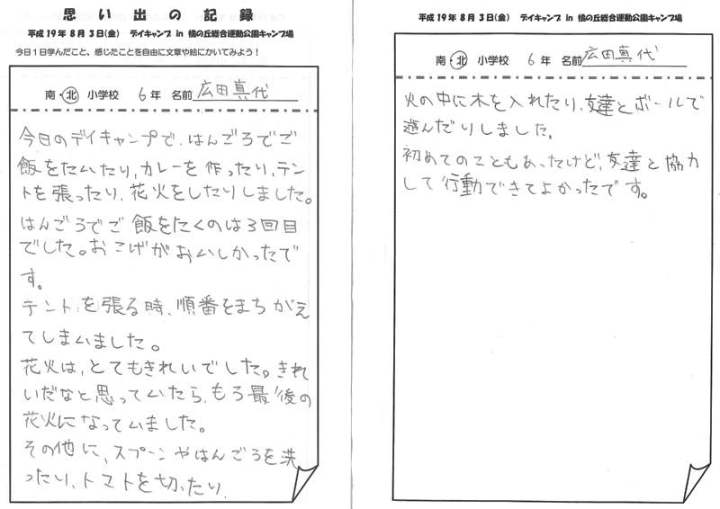 思い出の記録
平成19年8月3日(金) デイキャンプ in 桃の丘総合運動公園キャンプ場
今日1日学んだこと、感じたことを自由に文章や絵にかいてみよう！
南・北 小学校 6年 名前 広田真代
今日のデイキャンプで、はんごうでご
飯をたいたり、カレーを作ったり、テン
トを張ったり、花火をしたりしました。
はんごうでご飯をたくのは3回目
でした。おこげがおいしかったで
す。
テントを張る時、順番をまちがえ
てしまいました。
花火は、とてもきれいでした。きれ
いだなと思っていたら、もう最後の
花火になっていました。
その他に、スプーンやはんごうを洗
ったり、トマトを切ったり、
平成19年8月3日(金) デイキャンプ in 桃の丘総合運動公園キャンプ場
南・北 小学校 6年 名前 広田真代
火の中に木を入れたり、友達とボールで
遊んだりしました。
初めてのこともあったけど、友達と協力
して行動できてよかったです。